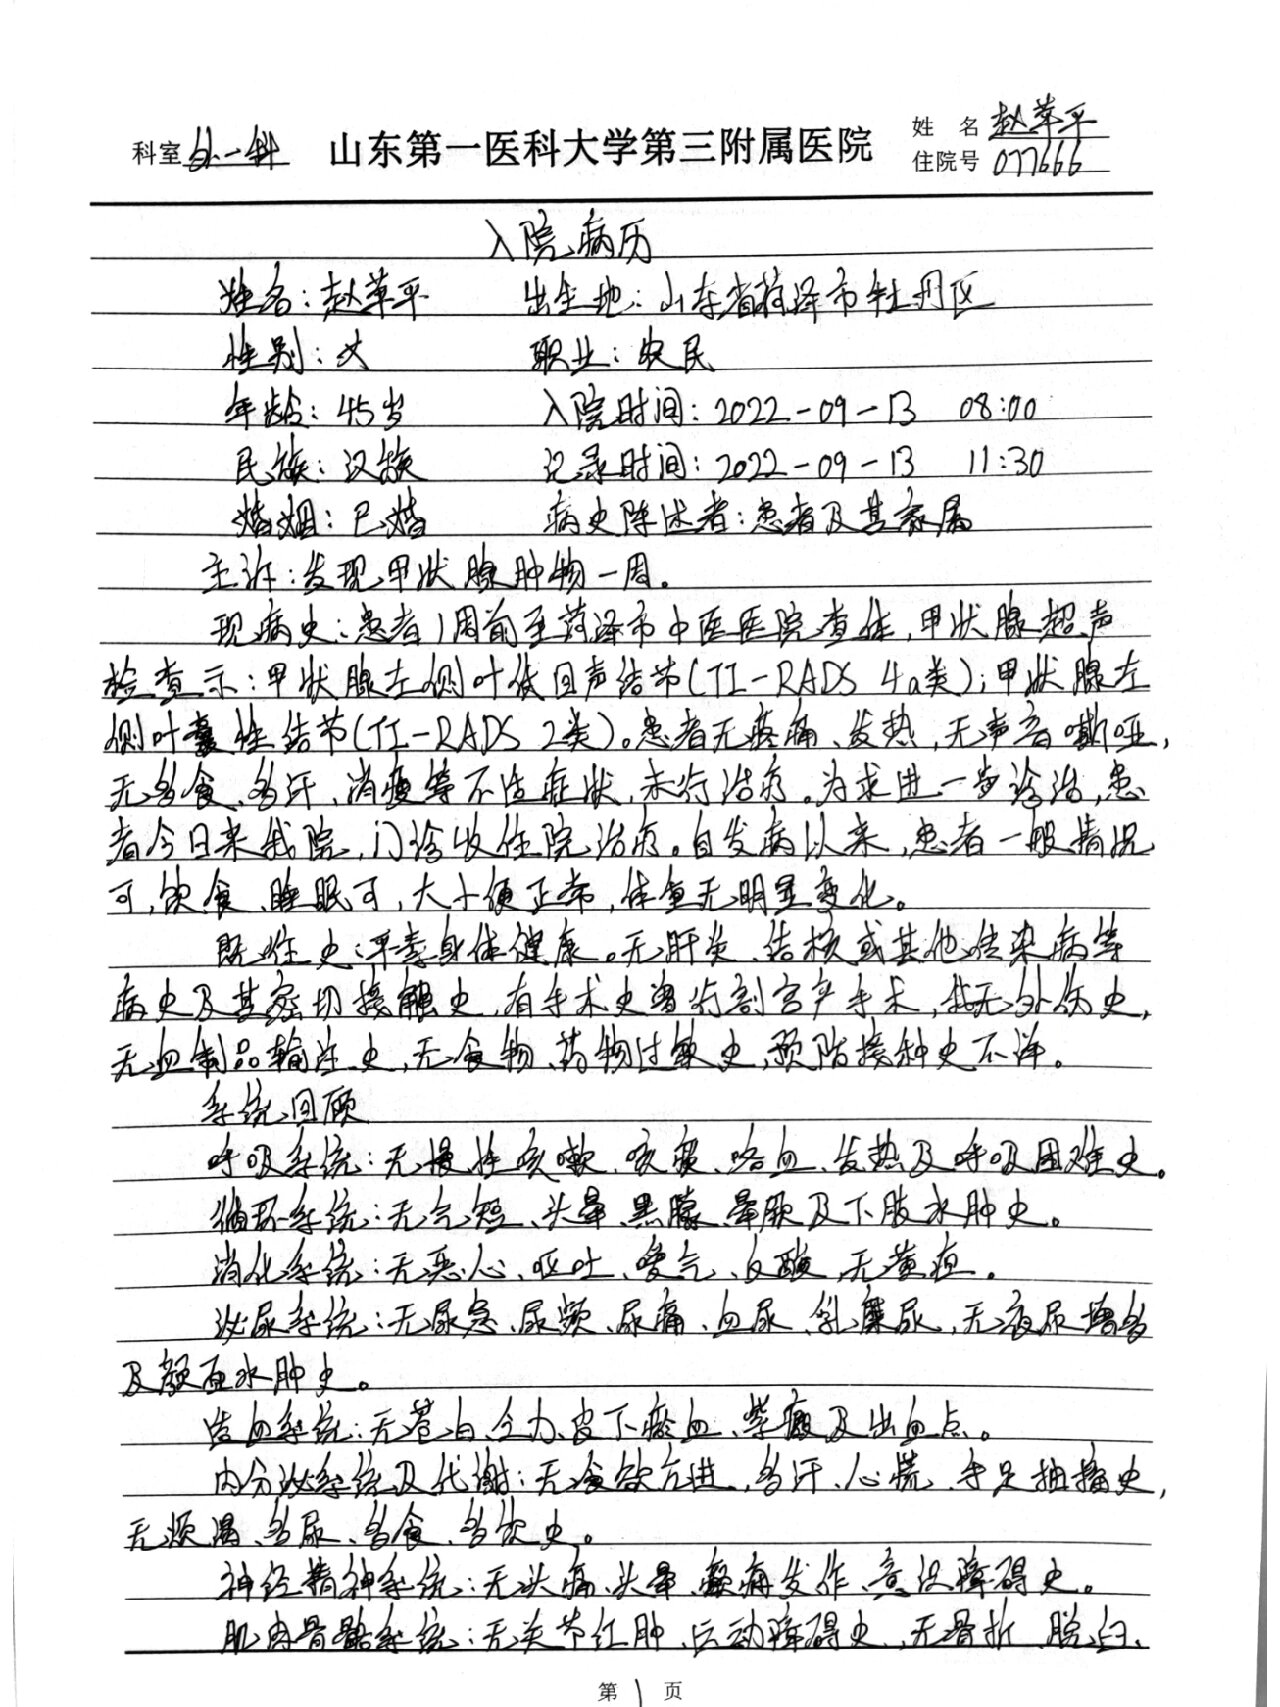 科室 外一科 山东第一医科大学第三附属医院 姓 名 赵苹平
住院号 077666
入院病历
姓名：赵苹平 出生地：山东省菏泽市牡丹区
性别：女 职业：农民
年龄：45岁 入院时间：2022-09-13 08:00
民族：汉族 记录时间：2022-09-13 11:30
婚姻：已婚 病史陈述者：患者及其家属
主诉：发现甲状腺肿物一周。
现病史：患者1周前至菏泽市中医医院查体，甲状腺超声
检查示：甲状腺左侧叶低回声结节(TI-RADS 4a类)；甲状腺左
侧叶囊性结节(TI-RADS 2类)。患者无疼痛、发热，无声音嘶哑，
无多食、多汗、消瘦等不适症状，未行治疗。为求进一步诊治，患
者今日来我院，门诊收住院治疗。自发病以来，患者一般情况
可，饮食、睡眠可，大小便正常，体重无明显变化。
既往史：平素身体健康。无肝炎、结核或其他传染病等
病史及其密切接触史，有手术史曾行剖宫产手术，无外伤史，
无血制品输注史，无食物、药物过敏史，预防接种史不详。
系统回顾
呼吸系统：无慢性咳嗽、咳痰、咯血、发热及呼吸困难史。
循环系统：无气短、头晕、黑朦、晕厥及下肢水肿史。
消化系统：无恶心、呕吐、嗳气、反酸，无黄疸。
泌尿系统：无尿急、尿频、尿痛、血尿、乳糜尿，无夜尿增多
及颜面水肿史。
造血系统：无苍白、乏力、皮下瘀血、紫癜及出血点。
内分泌系统及代谢：无食欲亢进、多汗、心慌、手足抽搐史，
无烦渴、多尿、多食、多饮史。
神经精神系统：无头痛、头晕、癫痫发作、意识障碍史。
肌肉骨骼系统：无关节红肿、运动障碍史，无骨折、脱臼、
第 1 页